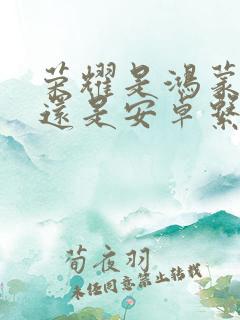 荣耀是鸿蒙
還是安卓繫
荀夜羽
未经同意禁止转载